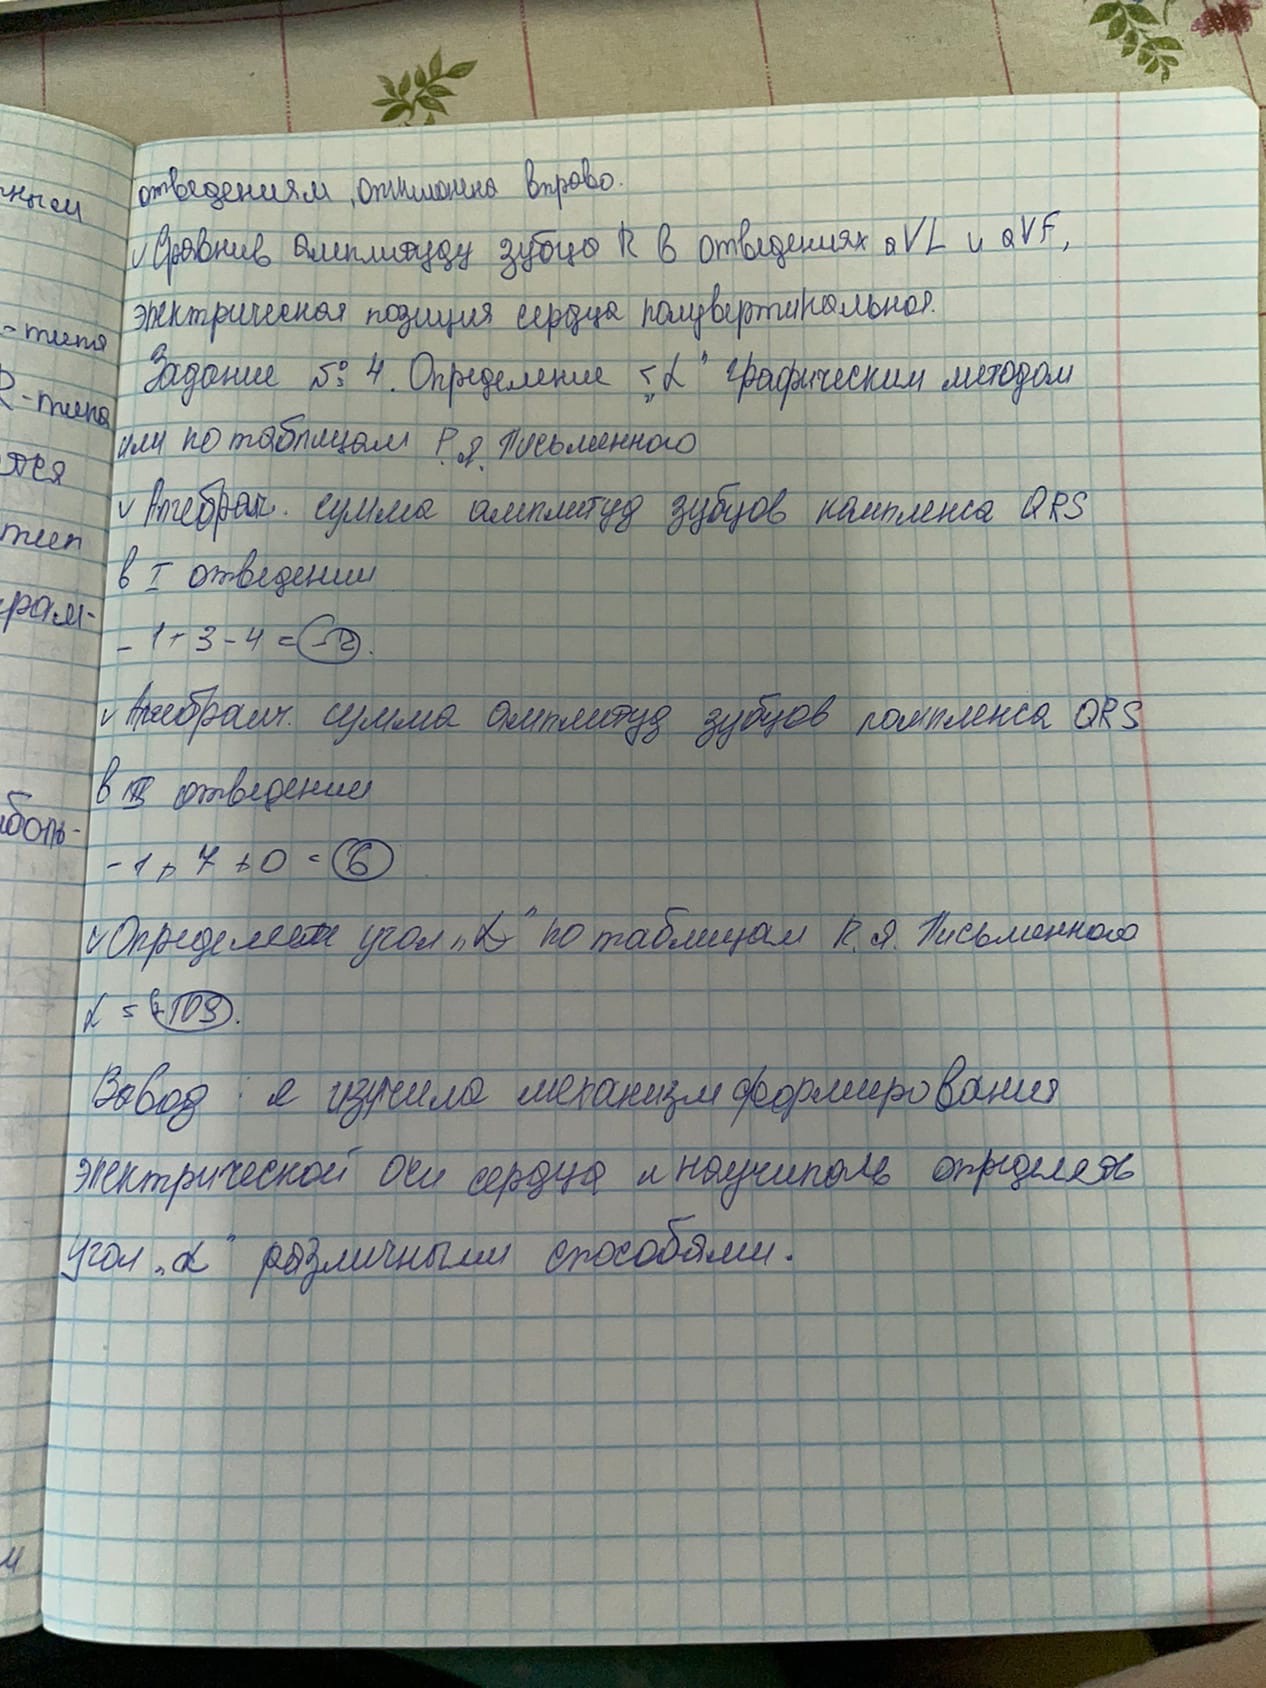 отведениям, отклонена вправо.
✓ Сравнив амплитуду зубца R в отведениях aVL и aVF,
электрическая позиция сердца полувертикальная.
Задание № 4. Определение <„α" графическим методом
или по таблицам Р. Я. Письменного
✓ Алгебраич. сумма амплитуд зубцов комплекса QRS
в I отведении
-1+3-4=-2.
✓ Алгебраич. сумма амплитуд зубцов комплекса QRS
в III отведении
-1+7+0=6
✓ Определяем угол „α" по таблицам Р. Я. Письменного
α = +109.
Вывод: я изучила механизм формирования
электрической оси сердца и научилась определять
угол „α" различными способами.
ным
-типа
R-типа
тся
тип
грам-
боль-